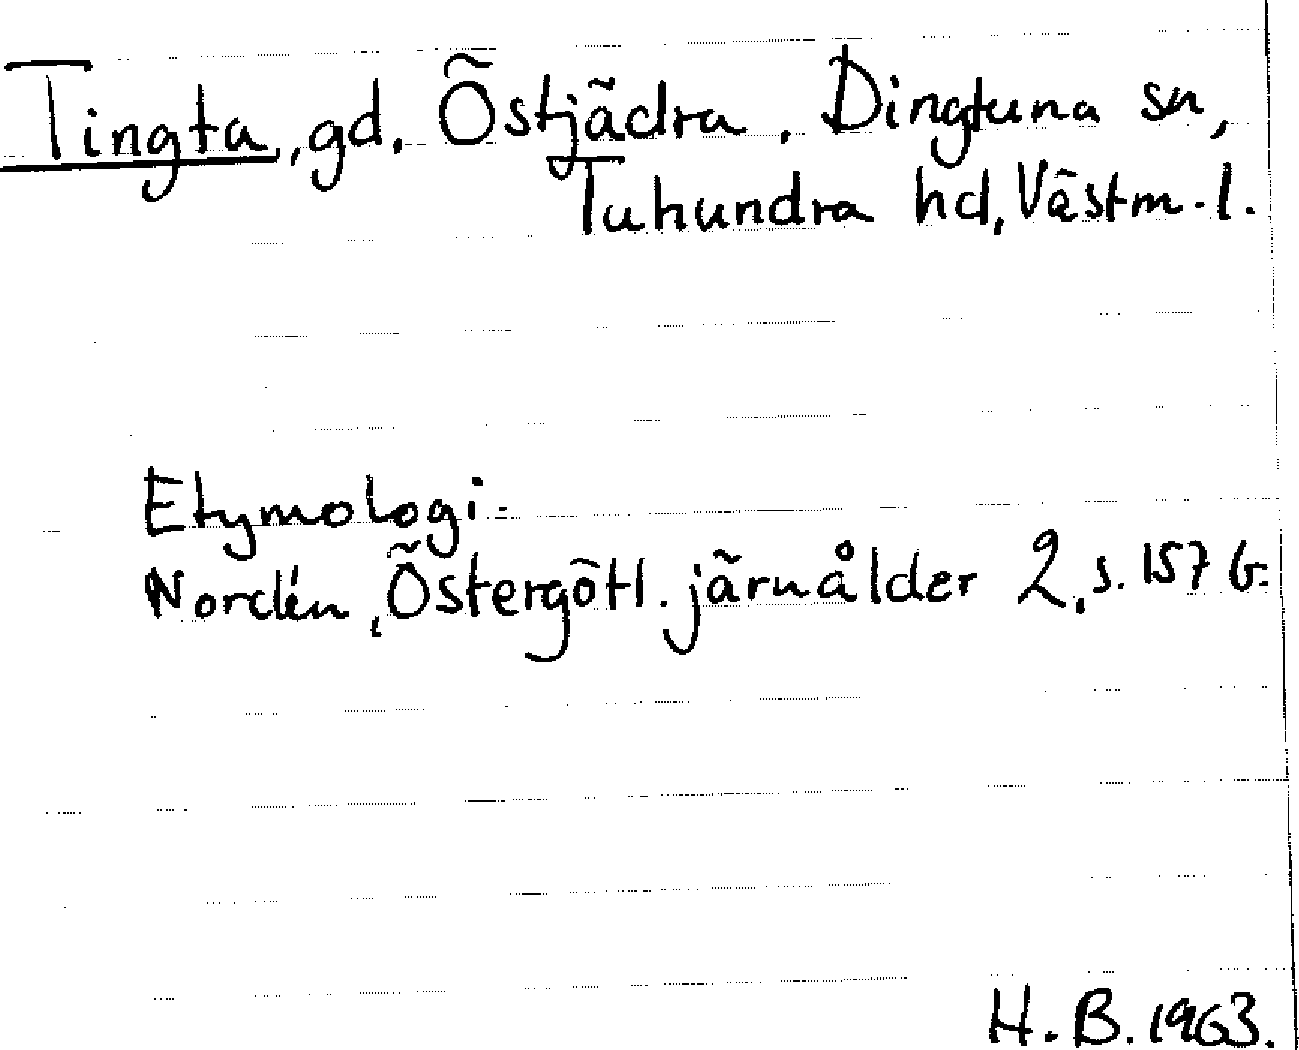 Tingta, gd. Östjädra, Dingtuna sn,
Tuhundra hd, Västm. l.
Etymologi:
Nordén, Östergötl. järnålder 2, s. 157 b.
H. B. 1963.